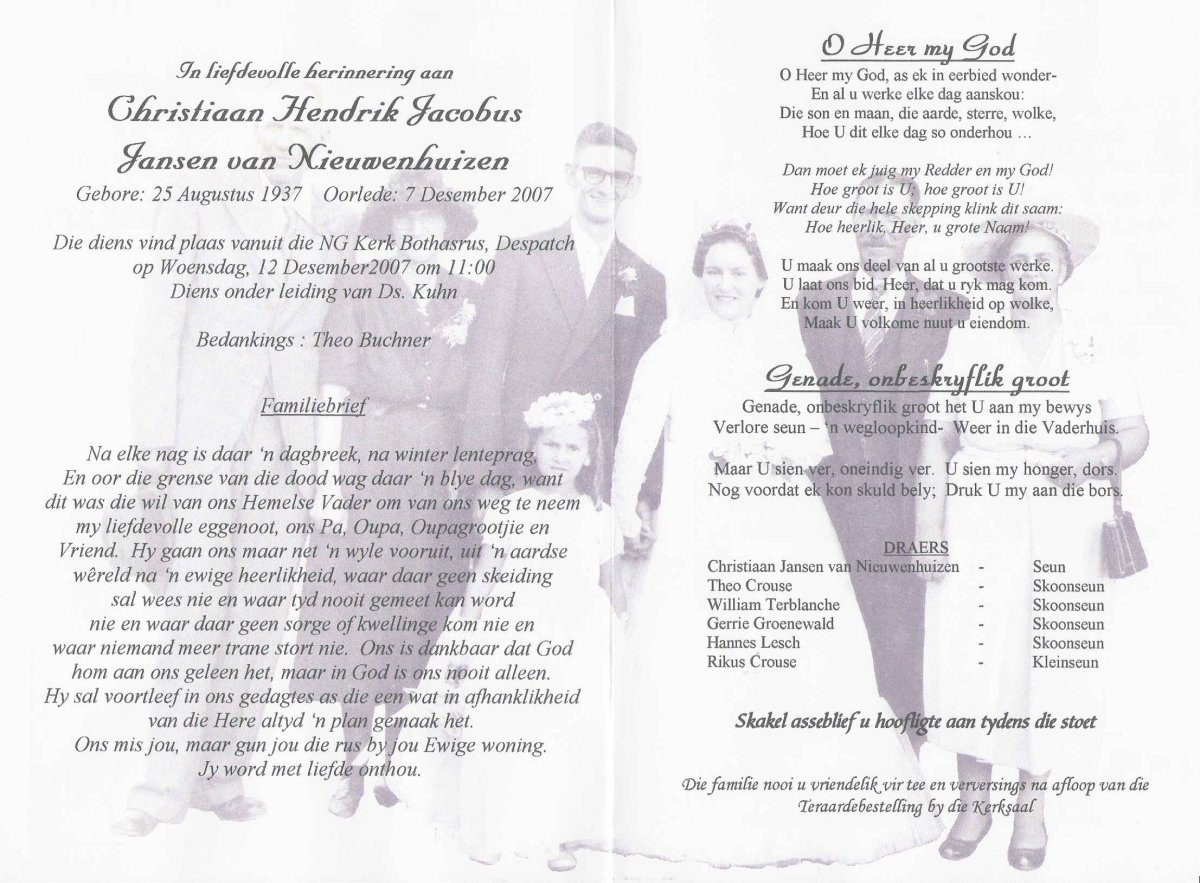 In liefdevolle herinnering aan
Christiaan Hendrik Jacobus
Jansen van Nieuwenhuizen
Gebore: 25 Augustus 1937 Oorlede: 7 Desember 2007
Die diens vind plaas vanuit die NG Kerk Bothasrus, Despatch
op Woensdag, 12 Desember2007 om 11:00
Diens onder leiding van Ds. Kuhn
Bedankings : Theo Buchner
Familiebrief
Na elke nag is daar ‘n dagbreek, na winter lenteprag,
En oor die grense van die dood wag daar ‘n blye dag, want
dit was die wil van ons Hemelse Vader om van ons weg te neem
my liefdevolle eggenoot, ons Pa, Oupa, Oupagrootjie en
Vriend. Hy gaan ons maar net ‘n wyle vooruit, uit ‘n aardse
wêreld na ‘n ewige heerlikheid, waar daar geen skeiding
sal wees nie en waar tyd nooit gemeet kan word
nie en waar daar geen sorge of kwellinge kom nie en
waar niemand meer trane stort nie. Ons is dankbaar dat God
hom aan ons geleen het, maar in God is ons nooit alleen.
Hy sal voortleef in ons gedagtes as die een wat in afhanklikheid
van die Here altyd ‘n plan gemaak het.
Ons mis jou, maar gun jou die rus by jou Ewige woning.
Jy word met liefde onthou.
O Heer my God
O Heer my God, as ek in eerbied wonder-
En al u werke elke dag aanskou:
Die son en maan, die aarde, sterre, wolke,
Hoe U dit elke dag so onderhou …
Dan moet ek juig my Redder en my God!
Hoe groot is U; hoe groot is U!
Want deur die hele skepping klink dit saam:
Hoe heerlik, Heer, u grote Naam!
U maak ons deel van al u grootste werke.
U laat ons bid. Heer, dat u ryk mag kom.
En kom U weer, in heerlikheid op wolke,
Maak U volkome nuut u eiendom.
Genade, onbeskryflik groot
Genade, onbeskryflik groot het U aan my bewys
Verlore seun – ‘n wegloopkind- Weer in die Vaderhuis.
Maar U sien ver, oneindig ver. U sien my honger, dors.
Nog voordat ek kon skuld bely; Druk U my aan die bors.
DRAERS
Christiaan Jansen van Nieuwenhuizen - Seun
Theo Crouse - Skoonseun
William Terblanche - Skoonseun
Gerrie Groenewald - Skoonseun
Hannes Lesch - Skoonseun
Rikus Crouse - Kleinseun
Skakel asseblief u hoofligte aan tydens die stoet
Die familie nooi u vriendelik vir tee en verversings na afloop van die
Teraardebestelling by die Kerksaal